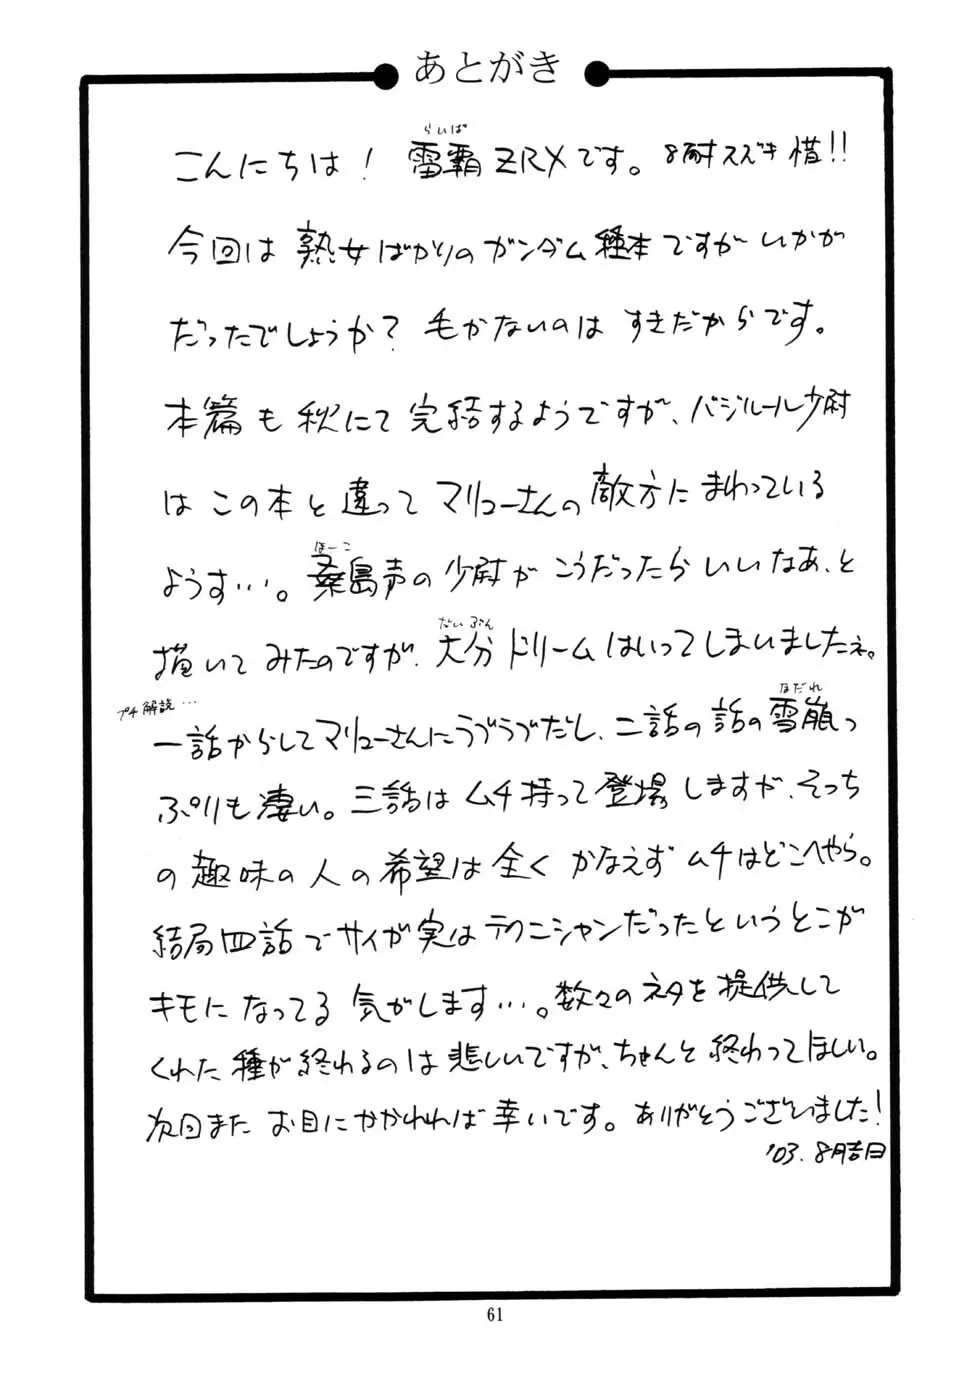 あとがき
らいぱ
こんにちは！ 雷覇ZRXです。 8耐スズキ惜!!
今回は 熟女ばかりのガンダム種本ですが いかが
だったでしょうか？ 毛がないのは すきだからです。
本篇も 秋にて 完結するようですが、バジルール少尉
は この本と 違って マリューさんの 敵方に まわっている
ほーこ
ようす…。桑島声の 少尉が こうだったら いいなあ、と
だいぶん
描いて みたのですが、大分 ドリーム はいって しまいましたネ。
プチ解説…
なだれ
一話からして マリューさんに ラブラブだし、二話の 話の 雪崩っ
ぷりも 凄い。三話は ムチ持って 登場 しますが、そっち
の 趣味の 人の 希望は 全く かなえず ムチは どこへやら。
結局四話で サイが 実は テクニシャンだったというとこが
キモに なってる 気がします…。数々の ネタを 提供して
くれた 種が 終わるのは 悲しいですが、ちゃんと 終わって ほしい。
次回また お目に かかわれば 幸いです。 ありがとうございました！
'03. 8月吉日
61